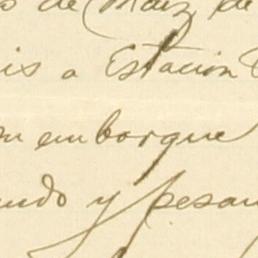 de Maiz de
is a Estacion
embarque
ndo y pesan